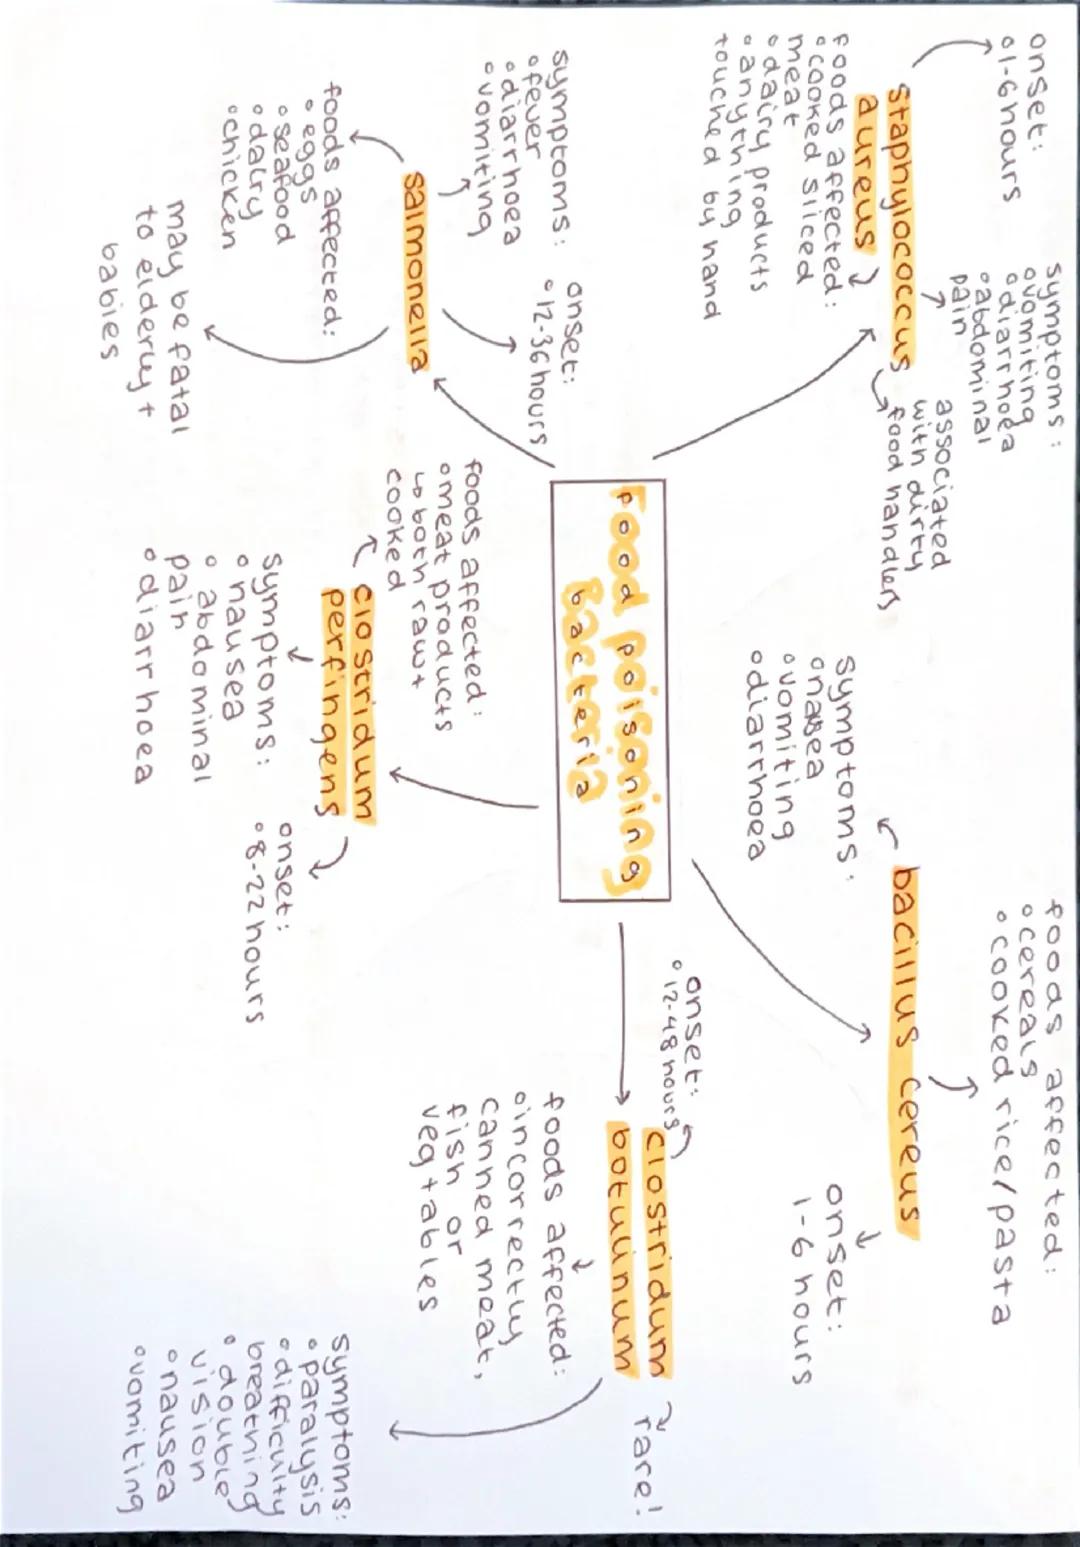 Food poisoning
bacteria
staphylococcus
aureus
onset:
1-6 hours
symptoms:
vomiting
diarrhoea
abdominal
pain
associated
with dirty
food handlers
foods affected:
cooked sliced
meat
dairy products
anything
touched by hand
bacillus cereus
foods affected:
cereals
cooked rice/pasta
symptoms:
nasea
vomiting
diarrhoea
onset:
1-6 hours
salmonella
symptoms:
fever
diarrhoea
vomiting
onset:
12-36 hours
foods affected:
eggs
seafood
dairy
chicken
may be fatal
to elderly +
babies
clostridum
perfingens
foods affected:
meat products
↳ both raw +
cooked
symptoms:
nausea
abdominal
pain
diarrhoea
onset:
8-22 hours
clostridum
botulinum
rare!
onset:
12-48 hours
foods affected:
incorrectly
canned meat,
fish or
vegtables
symptoms:
paralysis
difficulty
breathing
double
vision
nausea
vomiting